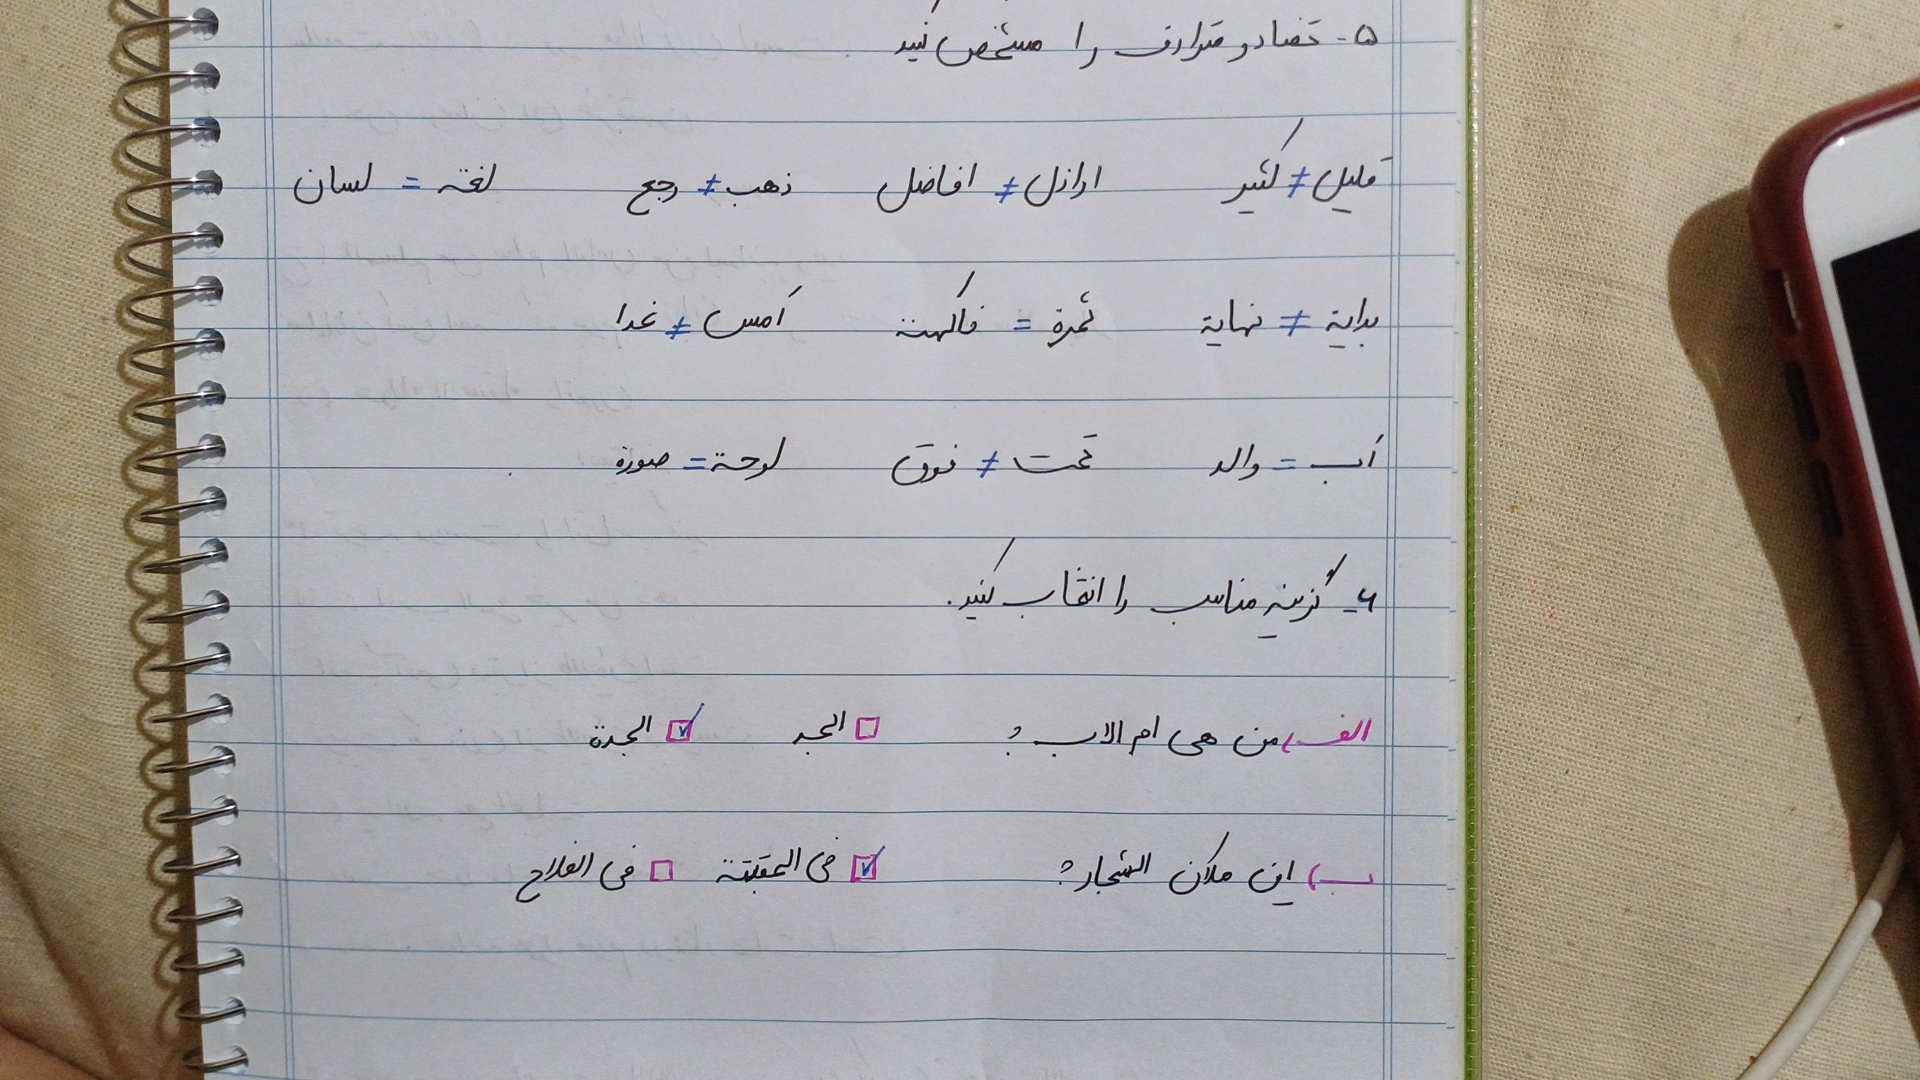 ۵- تضاد و مترادف را مشخص کنید
قلیل ≠ کثیر    اراذل ≠ افاضل    ذهب ≠ رجع    لغة = لسان
بدایة ≠ نهایة    ثمرة = فاکهة    أمس ≠ غدا
أب = والد    تحت ≠ فوق    لوحة = صورة
۶- گزینه مناسب را انتخاب کنید.
الف) من هی ام الاب؟    □ الجد    ☑ الجدة
ب) این مکان الشجار؟    ☑ فی    □ فی الفلاح